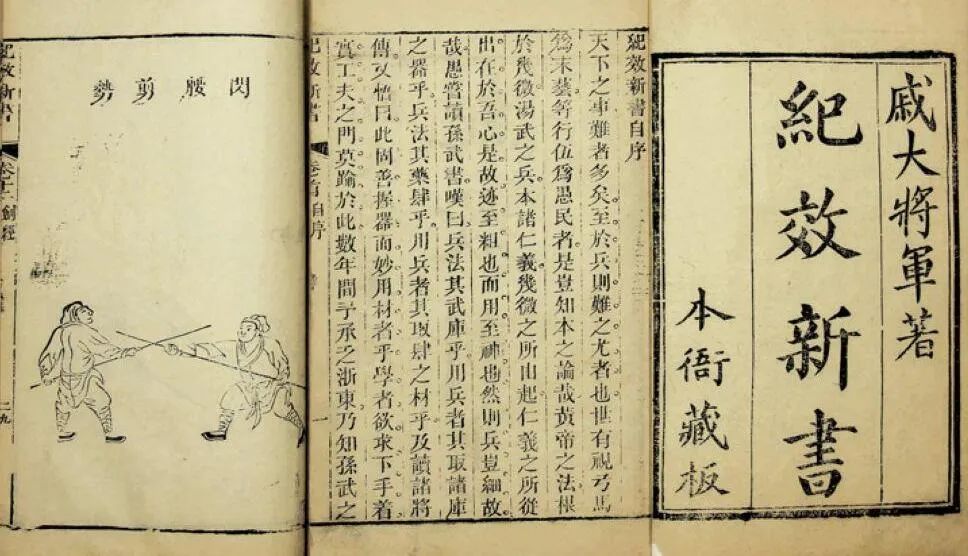 戚大將軍著
紀效新書
本衙藏板
紀效新書自序
天下之事難者多矣至於兵則難之尤者也世有視弓馬
爲末藝等行伍爲愚民者是豈知本之論哉黃帝之法根
於幾微湯武之兵本諸仁義幾微之所由起仁義之所從
出在於吾心是故迹至粗也而用至神也然則兵豈細故
哉愚嘗讀孫武書嘆曰兵法其武庫乎用兵者其取諸庫
之器乎兵法其藥肆乎用兵者其取肆之材乎及讀諸將
傳又悟曰此固善握器而妙用材者乎學者欲求下手着
實工夫之門莫踰於此數年間予承乏浙東乃知孫武之
紀效新書 卷首自序 一
閃腰剪勢
紀效新書 卷十二 劍經 二九